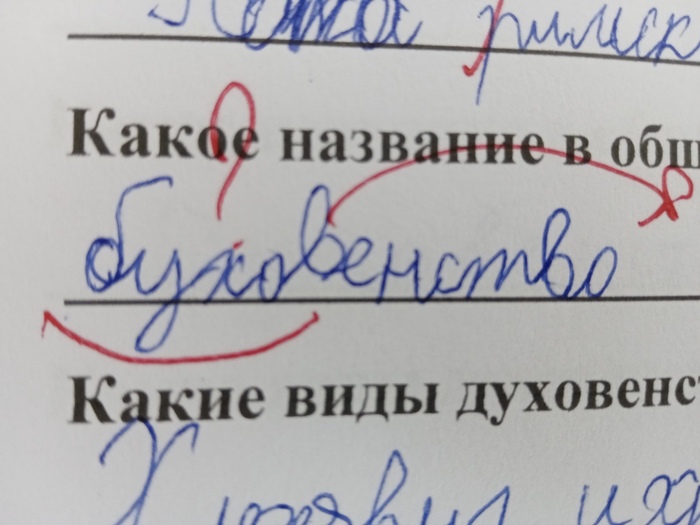 римск
Какое название в общ
буховенство
Какие виды духовенст